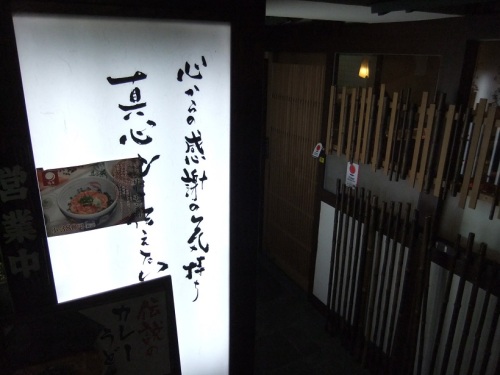 心からの感謝の気持ち
真心
伝えたい
営業中
伝説の
カレー
うどん